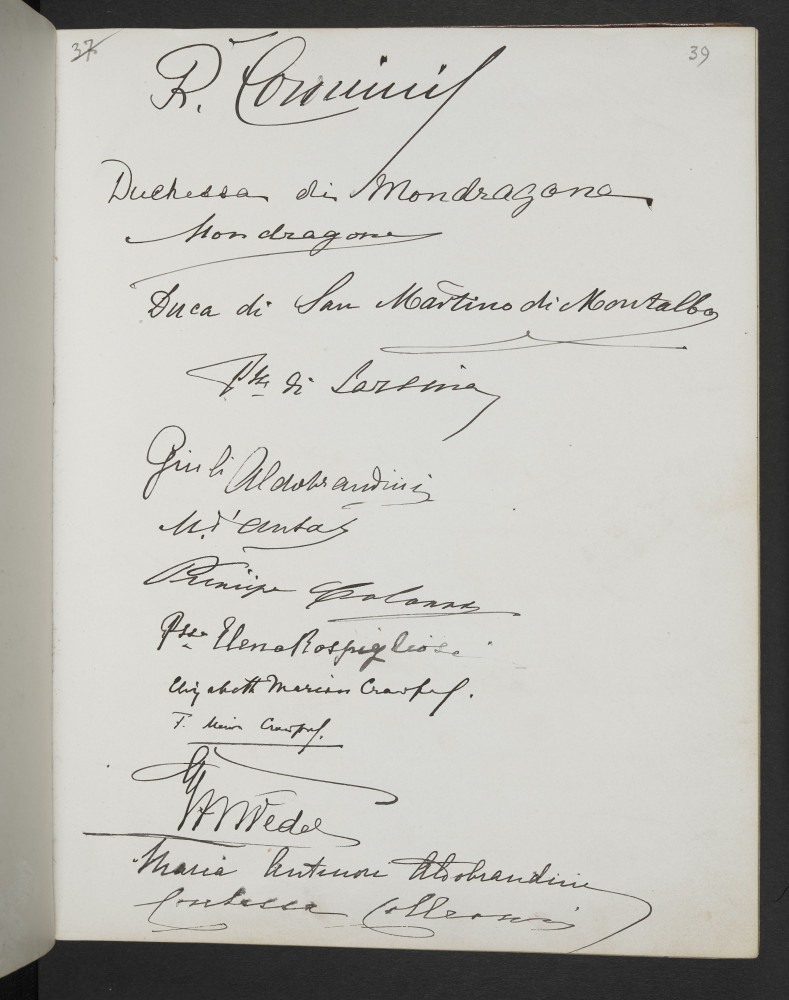 37 39
R.
Duchessa di Mondragone
Mondragone
Duca di San Martino di Montalbo
di Sarsina
Giuli Aldobrandini
M.
Principe Colonna
Pssa Elena Rospigliosi
Elizabeth Marion Crawford.
F. Marion Crawford.
Wedel
Maria Antinori Aldobrandini
Contessa Colleoni